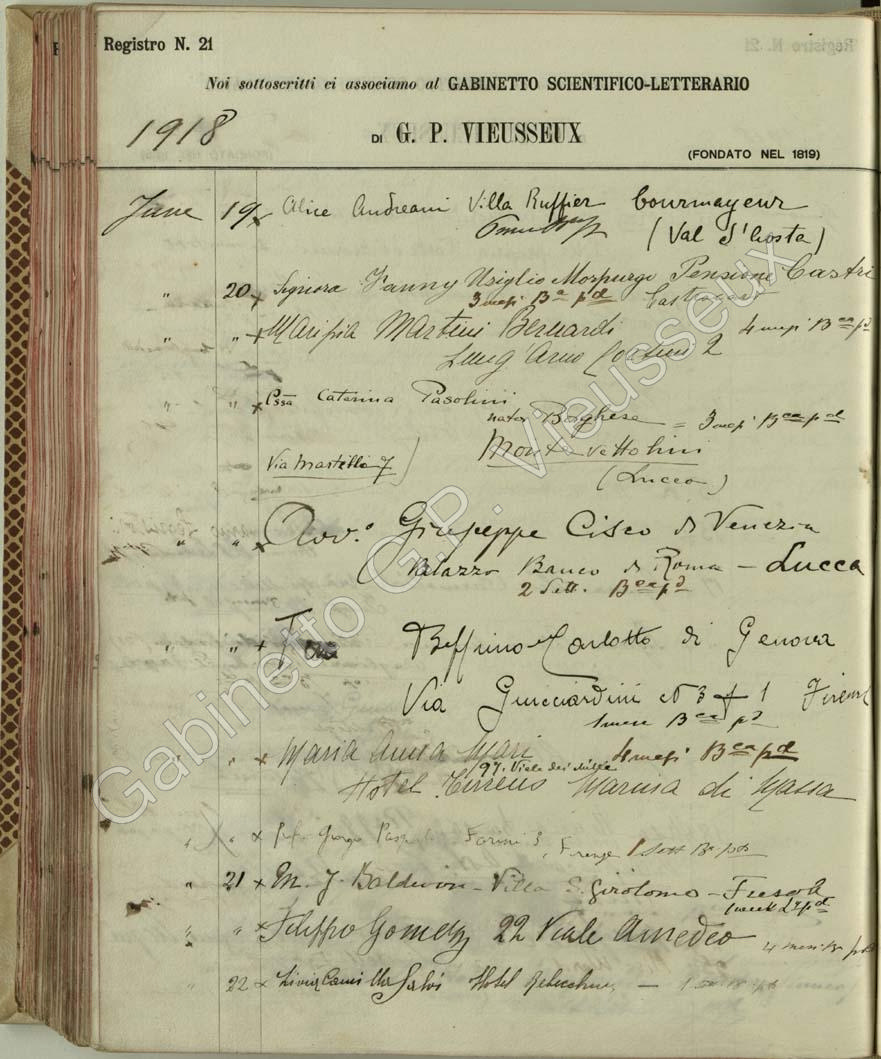 Registro N. 21
Noi sottoscritti ci associamo al GABINETTO SCIENTIFICO-LETTERARIO
1918
DI G. P. VIEUSSEUX
(FONDATO NEL 1819)
June 19 x Alice Andreani Villa Ruffier Courmayeur
(Val d'Aosta)
" 20 x Signora Fanny Usiglio Morpurgo Pensione Castri
3 mesi Bca pd
" " x Marisia Martini Bernardi 4 mesi Bca pd
Lung'Arno Corsini 2
" " x Cssa Caterina Pasolini
nata Borghese = 3 mesi Bca pd
Montevettolini
Via Martelli 7 (Lucca)
" " x Avv.o Giuseppe Cisco di Venezia
Palazzo Banco di Roma - Lucca
2 Sett. Bca pd
" " x
di Genova
Via Guicciardini N 3 1 Firenze
1 mese Bca pd
" " x Maria Anna Mari 4 mesi Bca pd
97. Viale dei Mille
Hotel Tirreno Marina di Massa
" " x Giorgio Farini
Firenze 1 Sett Bca pd
" 21 x M. J. Baldwin - Villa S. Girolamo - Fiesole
1 week pd
" " x Filippo Gomez 22 Viale Amedeo 4 mesi
" 22 x Livia Camilla Hotel
Gabinetto G.P. Vieusseux